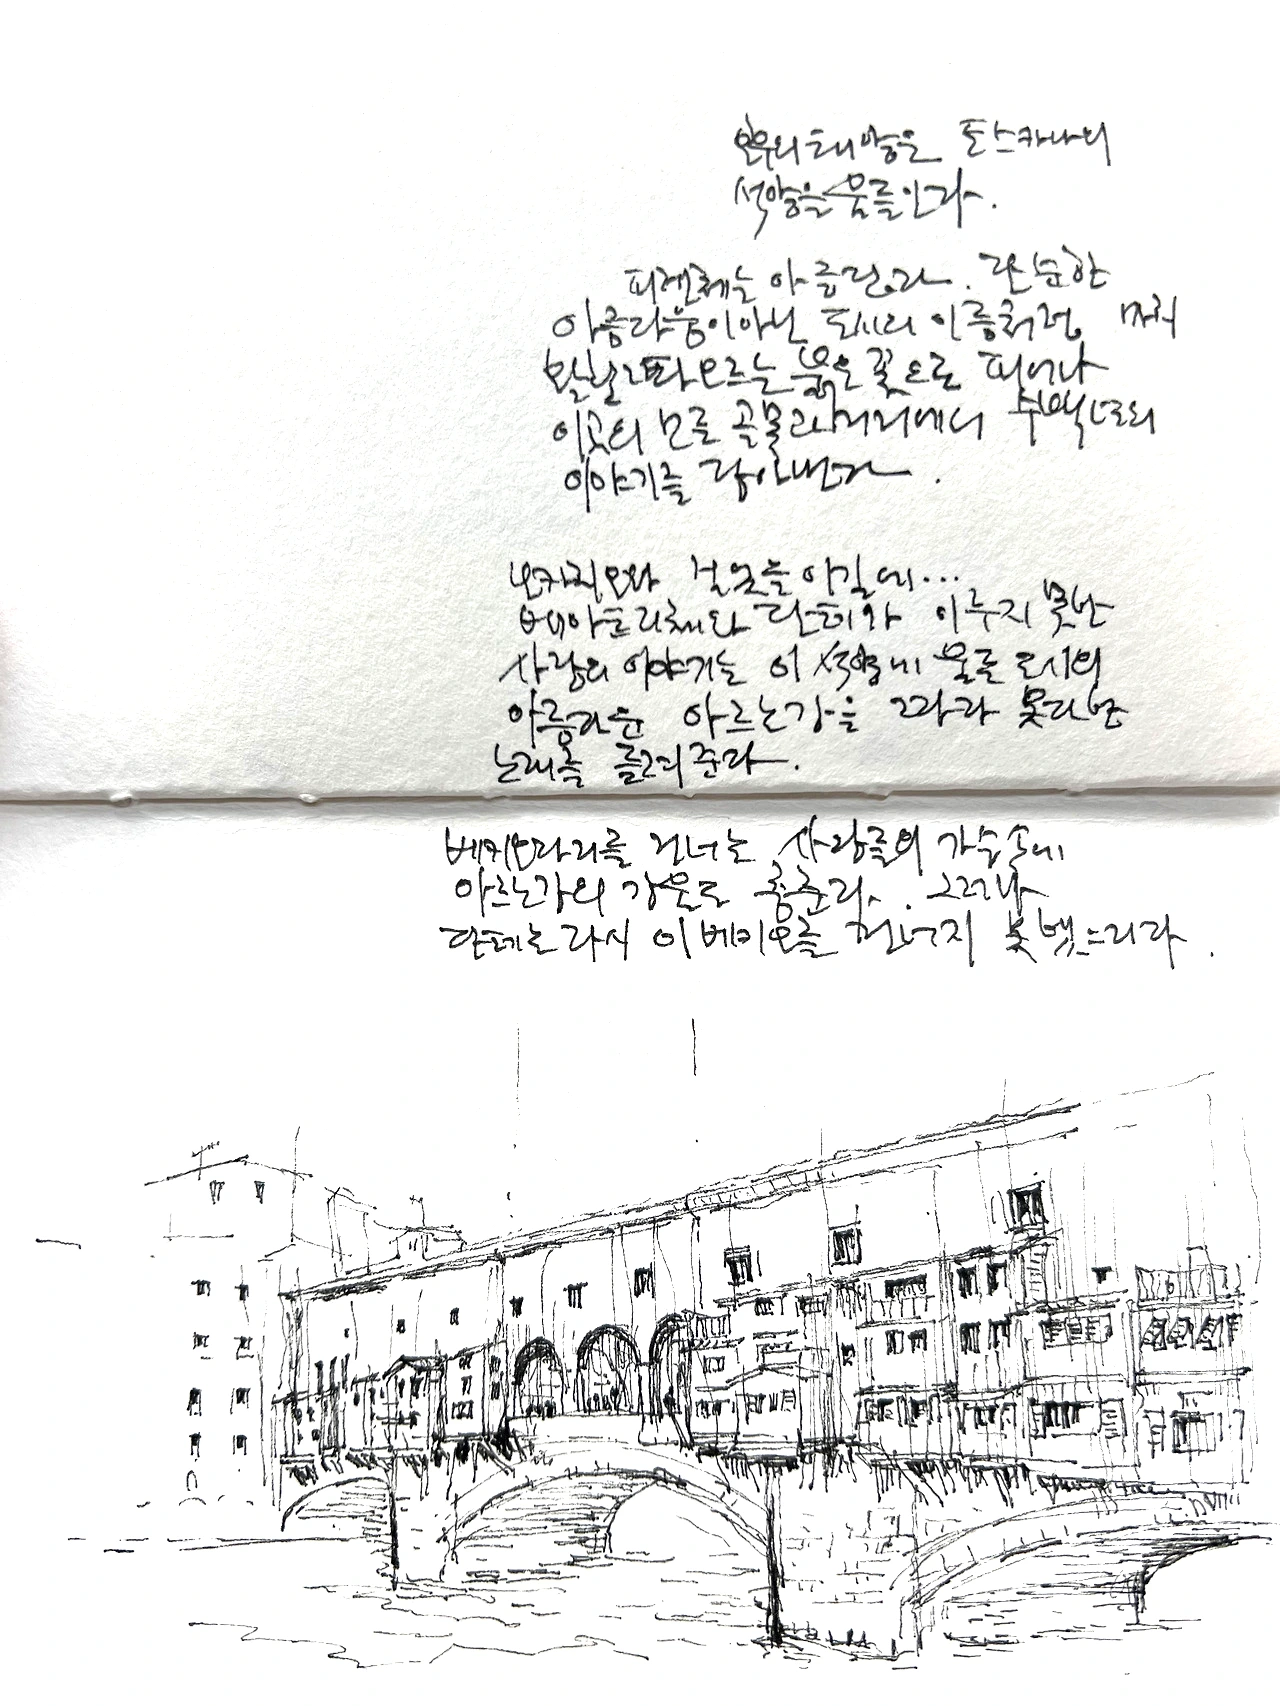 오후의 태양은 토스카나의
석양을 물들인다.
피렌체는 아름답다. 단순한
아름다움이 아닌 도시의 이름처럼 마치
활활 타오르는 붉은 꽃으로 피어나
이곳의 모든 골목과 거리에서 수백년의
이야기를 담아낸다.
걸었을 이길에...
베아트리체와 단테와 이루지 못한
사랑의 이야기는 이 석양에 물든 도시의
아름다운 아르노강을 따라 못다한
노래를 들려준다.
베키오다리를 건너는 사람들의 가슴속에
아르노강의 강물도 춤춘다. 그러나
단테는 다시 이 베키오를 건너지 못했으리라.